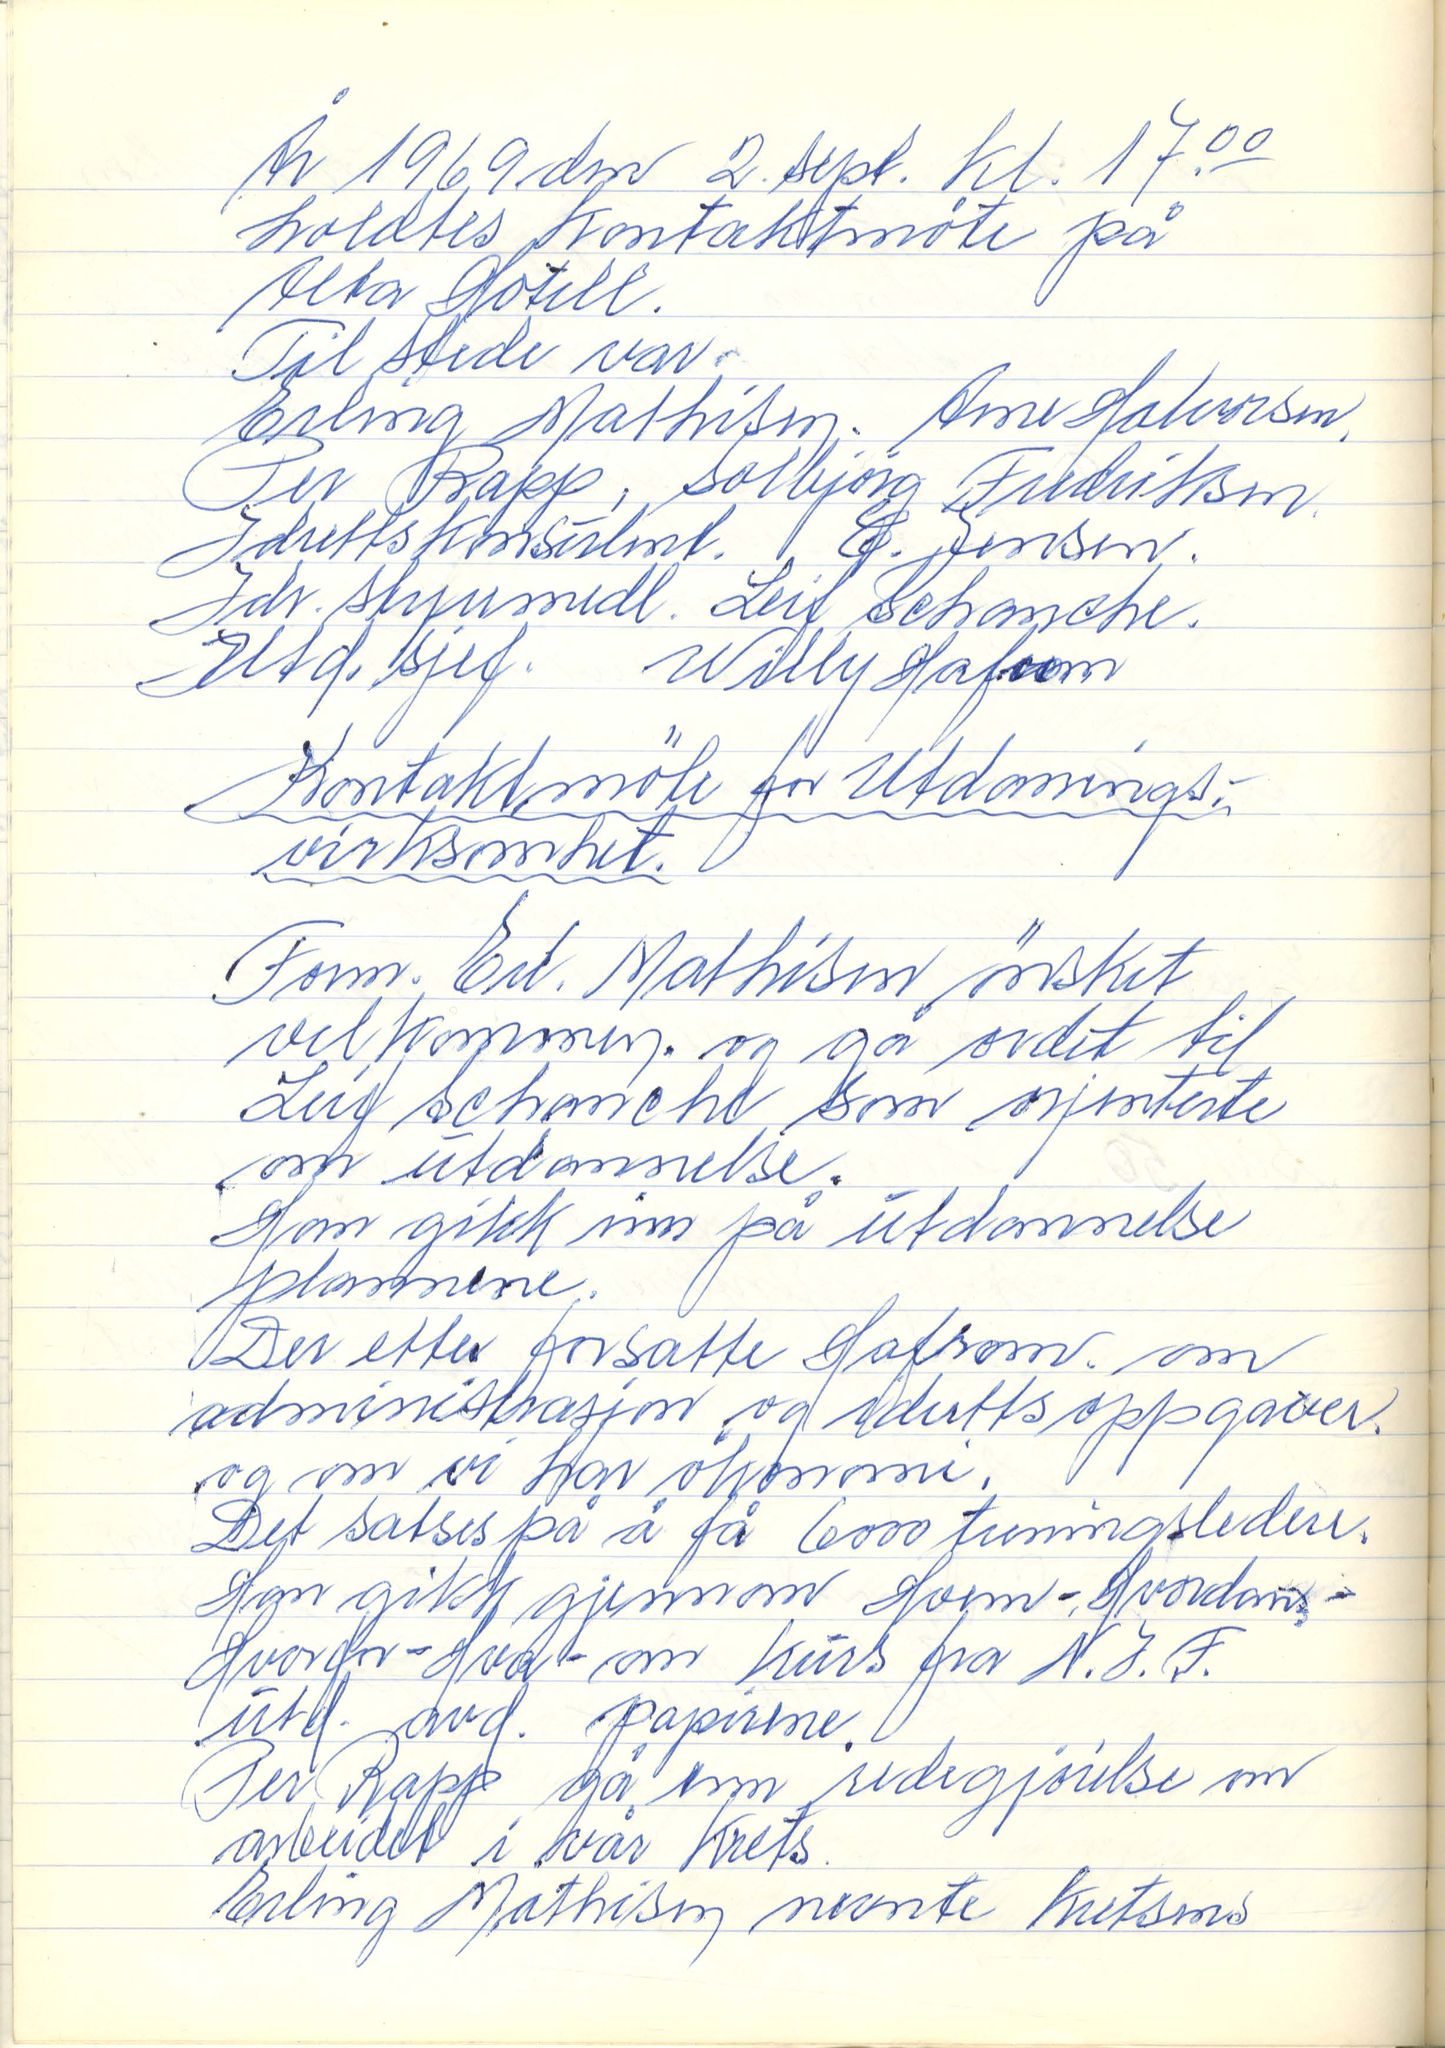 År 1969 den 2. sept. kl. 17.00
holdtes Kontaktmöte på
Alta Hotell.
Til stede var.
Erling Mathisen. Arne Halvorsen.
Per Rapp, Solbjörg Fredriksen.
Idrettskonsulent. E. Jensen.
Idr. styremedl. Leif Schanche.
Utd. sjef. Willy Hafrom
Kontaktmöte for Utdannings-
virksomhet.
Form. Erl. Mathisen önsket
velkommen. og ga ordet til
Leif Schanche som orjenterte
om utdannelse.
Han gikk inn på utdannelse
plannene.
Der etter forsatte Hafrom. om
administrasjon og idrettsoppgaver.
og om vi har økonomi.
Det satses på å få 6000 treningsledere.
Han gikk gjennom Hvem-Hvordan-
Hvorfor-Hva-om Kurs fra N.I.F.
utd. avd. papirene.
Per Rapp gå enn redegjörelse om
arbeidet i vår Krets.
Erling Mathisen nevnte Kretsens